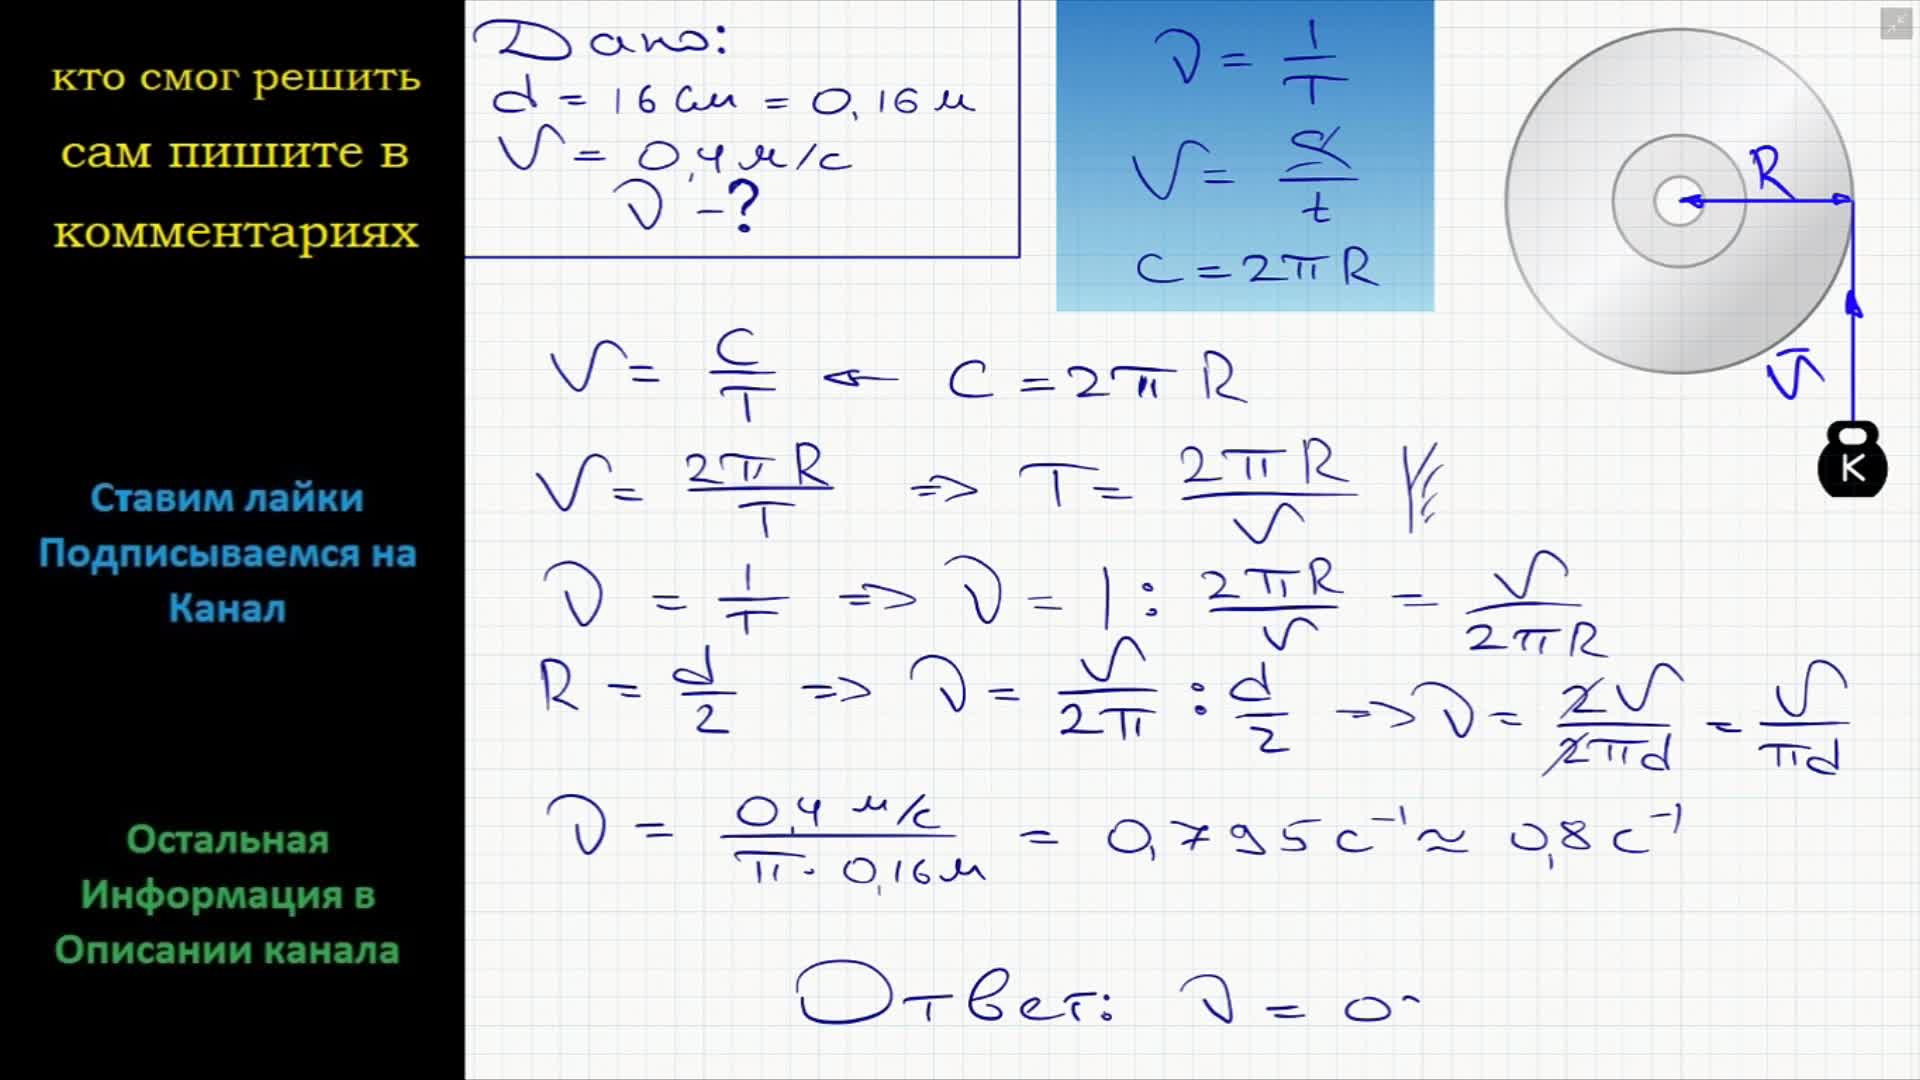 кто смог решить
сам пишите в
комментариях
Ставим лайки
Подписываемся на
Канал
Остальная
Информация в
Описании канала
Дано:
d = 16 см = 0,16 м
V = 0,4 м/с
ν - ?
ν = 1/T
V = S/t
C = 2πR
R
V
K
V = C/T ← C = 2πR
V = 2πR/T => T = 2πR/V
ν = 1/T => ν = 1 : 2πR/V = V/2πR
R = d/2 => ν = V/2π : d/2 => ν = 2V/2πd = V/πd
ν = 0,4 м/с / π · 0,16 м = 0,795 с⁻¹ ≈ 0,8 с⁻¹
Ответ: ν = 0